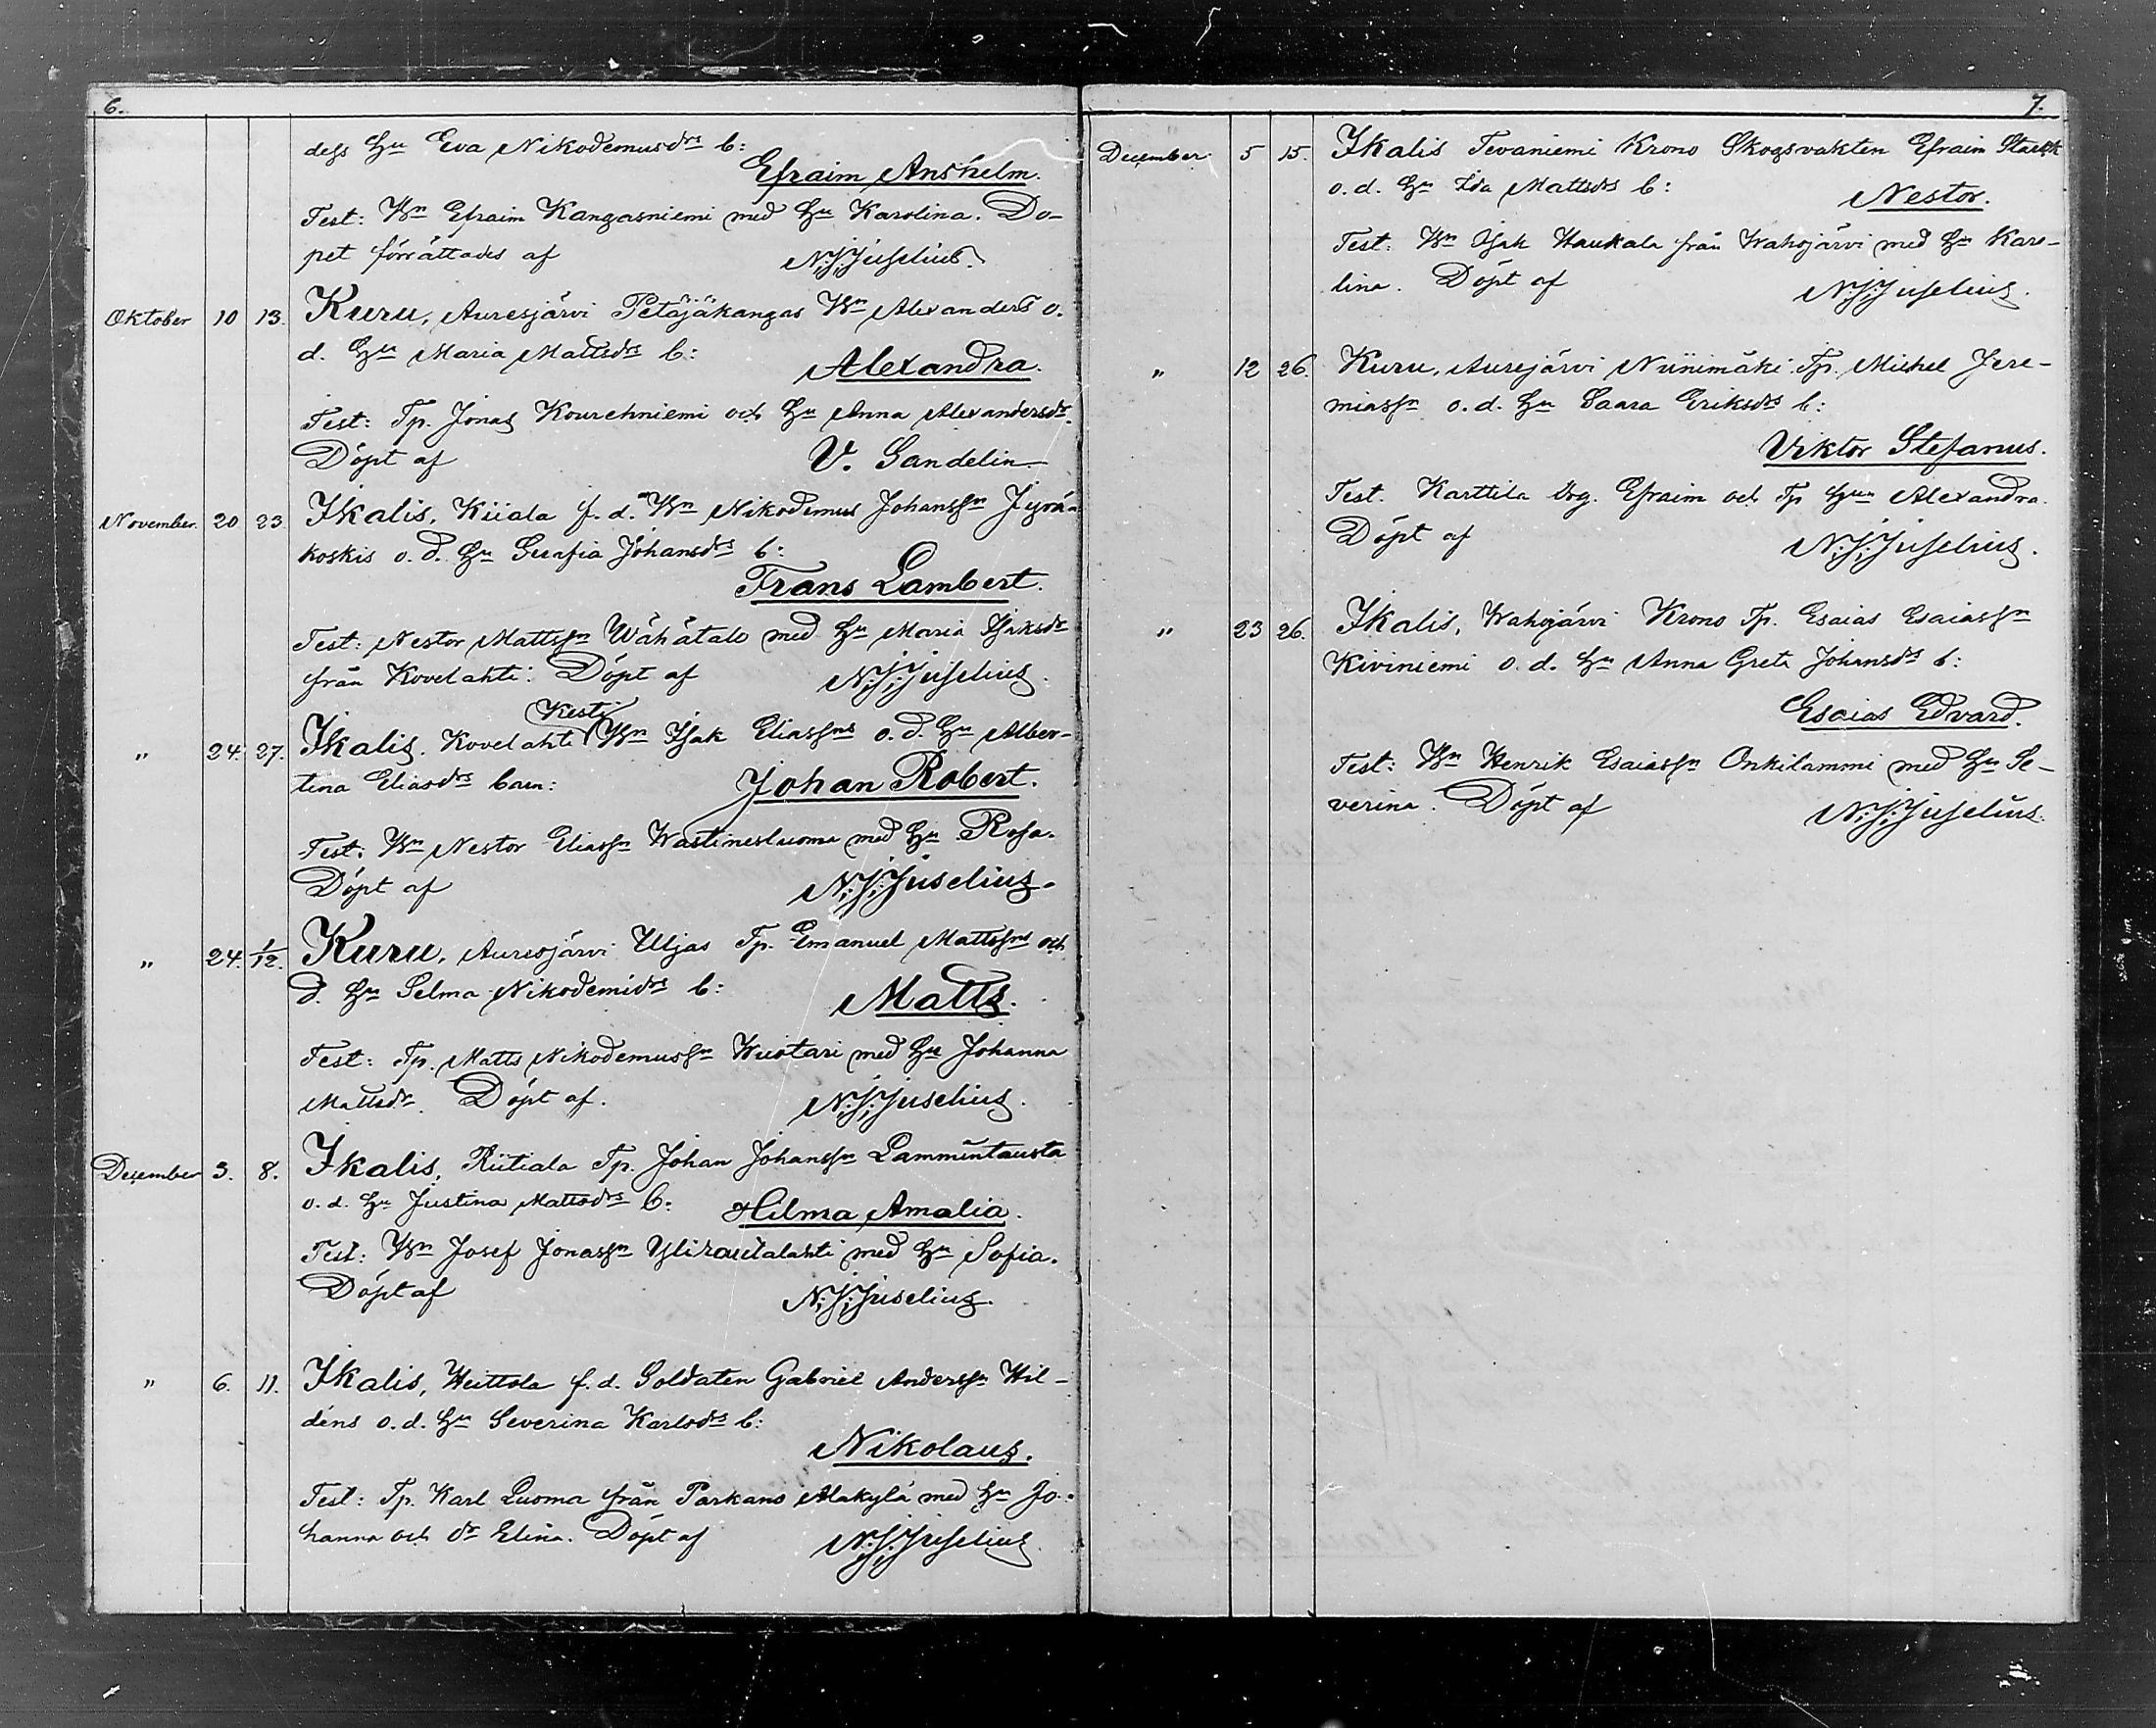 6.
dess Hu Eva Nikodemusdrs b:
Efraim Anshelm.
Test: Bn Efraim Kangasniemi med Hu Karolina. Do-
pet förrättades af N.J.Juselius.
Oktober 10 13. Kuru, Auresjärvi Petäjäkangas Bn Alexanders o.
d. Hu Maria Mattsdrs b: Alexandra.
Test: Tp. Jonas Kourehniemi och Hu Anna Alexandersdr.
Döpt af V. Sandelin
November. 20 23. Ikalis, Kiiala f.d. Bn Nikodemus Johanssn Jyrä-
koskis o.d. Hu Serafia Johansdrs b:
Frans Lambert.
Test: Nestor Mattssn Wähätalo med Hu Maria Isaksdr
från Kovelahti. Döpt af N.J.Juselius.
Kesti
" 24. 27. Ikalis. Kovelahti Bn Isak Eliassns o.d. Hu Alber-
tina Eliasdrs barn: Johan Robert.
Test: Bn Nestor Eliassn Wastinesluoma med Hu Rosa.
Döpt af N.J.Juselius.
" 24. 1/12. Kuru, Auresjärvi Uljas Tp. Emanuel Mattssns och
d. Hu Selma Nikodemidrs b: Matts.
Test: Tp. Matts Nikodemussn Wuotari med Hu Johanna
Mattsdr. Döpt af. N.J.Juselius.
December 3. 8. Ikalis, Riitiala Tp. Johan Johanssn Lammintausta
o.d. Hu Justina Mattsdrs b: Hilma Amalia.
Test: Bn Josef Jonassn Yliraudalahti med Hu Sofia.
Döpt af N.J.Juselius.
" 6. 11. Ikalis, Heittola f.d. Soldaten Gabriel Anderssn Hil-
déns o.d. Hu Severina Karlsdrs b:
Nikolaus.
Test: Tp. Karl Luoma från Parkano Alakylä med Hu Jo-
hanna och dr Elina. Döpt af N.J.Juselius
7.
December 5 15. Ikalis Tevaniemi Krono Skogsvakten Efraim
o.d. Hu Ida Mattsdrs b: Nestor.
Test: Bn Isak Haukala från Wahojärvi med Hu Karo-
lina. Döpt af N.J.Juselius.
" 12 26. Kuru, Aurejärvi Niinimäki Tp. Michel Jere-
miassn o.d. Hu Saara Eriksdrs b:
Viktor Stefanus.
Test. Karttila Drg. Efraim och Tp Hun Alexandra.
Döpt af N.J.Juselius.
" 23 26. Ikalis, Wahojärvi Krono Tp. Esaias Esaiassn
Kiviniemi o.d. Hu Anna Greta Johansdrs b:
Esaias Edvard.
Test: Bn Henrik Esaiassn Onkilammi med Hu Se-
verina. Döpt af N.J.Juselius.